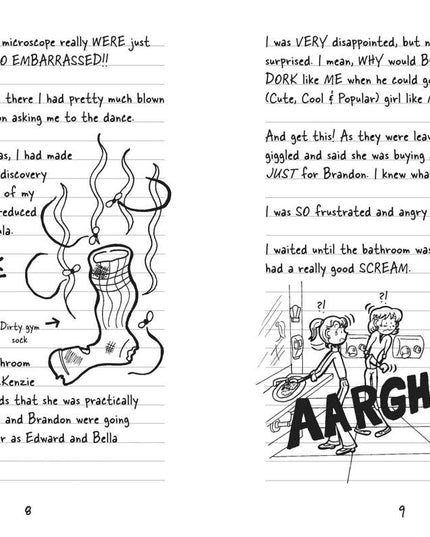 microscope really WERE just
O EMBARRASSED!!
there I had pretty much blown
on asking me to the dance.
as, I had made
discovery
of my
reduced
la.
E
Dirty gym
sock
hroom
cKenzie
ds that she was practically
and Brandon were going
r as Edward and Bella
8
I was VERY disappointed, but n
surprised. I mean, WHY would B
DORK like ME when he could g
(Cute, Cool & Popular) girl like M
And get this! As they were leav
giggled and said she was buying
JUST for Brandon. I knew what
I was SO frustrated and angry
I waited until the bathroom was
had a really good SCREAM.
?!
?!
AARGH
9